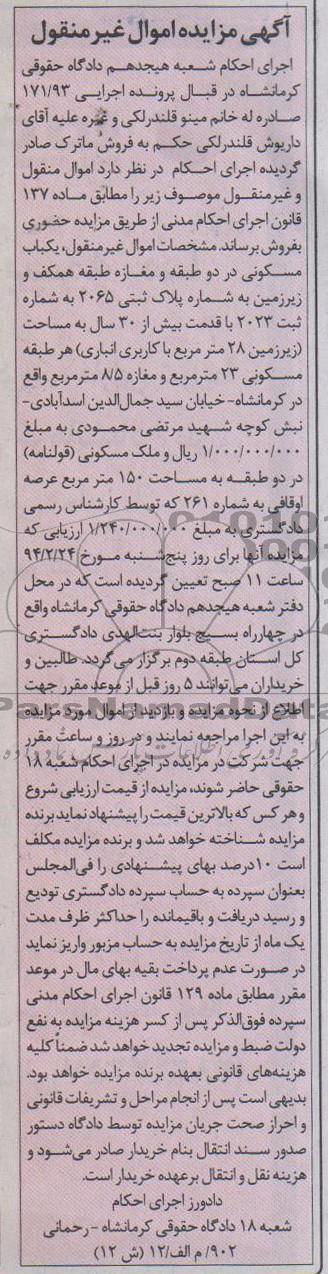 آگهی مزایده اموال غیر منقول
اجرای احکام شعبه هیجدهم دادگاه حقوقی
کرمانشاه در قبال پرونده اجرایی ۱۷۱/۹۳
صادره له خانم مینو قلندرلکی و غیره علیه آقای
داریوش قلندرلکی حکم به فروش ماترک صادر
گردیده اجرای احکام در نظر دارد اموال منقول
و غیرمنقول موصوف زیر را مطابق ماده ۱۳۷
قانون اجرای احکام مدنی از طریق مزایده حضوری
بفروش برساند. مشخصات اموال غیرمنقول، یکباب
مسکونی در دو طبقه و مغازه طبقه همکف و
زیرزمین به شماره پلاک ثبتی ۲۰۶۵ به شماره
ثبت ۲۰۲۳ با قدمت بیش از ۳۰ سال به مساحت
(زیرزمین ۲۸ متر مربع با کاربری انباری) هر طبقه
مسکونی ۲۳ مترمربع و مغازه ۸/۵ مترمربع واقع
در کرمانشاه- خیابان سید جمال‌الدین اسدآبادی-
نبش کوچه شهید مرتضی محمودی به مبلغ
۱/۰۰۰/۰۰۰/۰۰۰ ریال و ملک مسکونی (قولنامه)
در دو طبقه به مساحت ۱۵۰ متر مربع عرصه
اوقافی به شماره ۲۶۱ که توسط کارشناس رسمی
دادگستری به مبلغ ۱/۲۴۰/۰۰۰/۰۰۰ ارزیابی که
مزایده آنها برای روز پنج‌شنبه مورخ ۹۴/۲/۲۴
ساعت ۱۱ صبح تعیین گردیده است که در محل
دفتر شعبه هیجدهم دادگاه حقوقی کرمانشاه واقع
در چهارراه بسیج بلوار بنت‌الهدی دادگستری
کل استان طبقه دوم برگزار می‌گردد. طالبین و
خریداران می‌توانند ۵ روز قبل از موعد مقرر جهت
اطلاع از نحوه مزایده و بازدید از اموال مورد مزایده
به این اجرا مراجعه نمایند و در روز و ساعت مقرر
جهت شرکت در مزایده در اجرای احکام شعبه ۱۸
حقوقی حاضر شوند، مزایده از قیمت ارزیابی شروع
و هر کس که بالاترین قیمت را پیشنهاد نماید برنده
مزایده شناخته خواهد شد و برنده مزایده مکلف
است ۱۰درصد بهای پیشنهادی را فی‌المجلس
بعنوان سپرده به حساب سپرده دادگستری تودیع
و رسید دریافت و باقیمانده را حداکثر ظرف مدت
یک ماه از تاریخ مزایده به حساب مزبور واریز نماید
در صورت عدم پرداخت بقیه بهای مال در موعد
مقرر مطابق ماده ۱۲۹ قانون اجرای احکام مدنی
سپرده فوق‌الذکر پس از کسر هزینه مزایده به نفع
دولت ضبط و مزایده تجدید خواهد شد ضمناً کلیه
هزینه‌های قانونی بعهده برنده مزایده خواهد بود.
بدیهی است پس از انجام مراحل و تشریفات قانونی
و احراز صحت جریان مزایده توسط دادگاه دستور
صدور سند انتقال بنام خریدار صادر می‌شود و
هزینه نقل و انتقال برعهده خریدار است.
دادورز اجرای احکام
شعبه ۱۸ دادگاه حقوقی کرمانشاه - رحمانی
۹۰۲/ م الف/۱۲ (ش ۱۲)